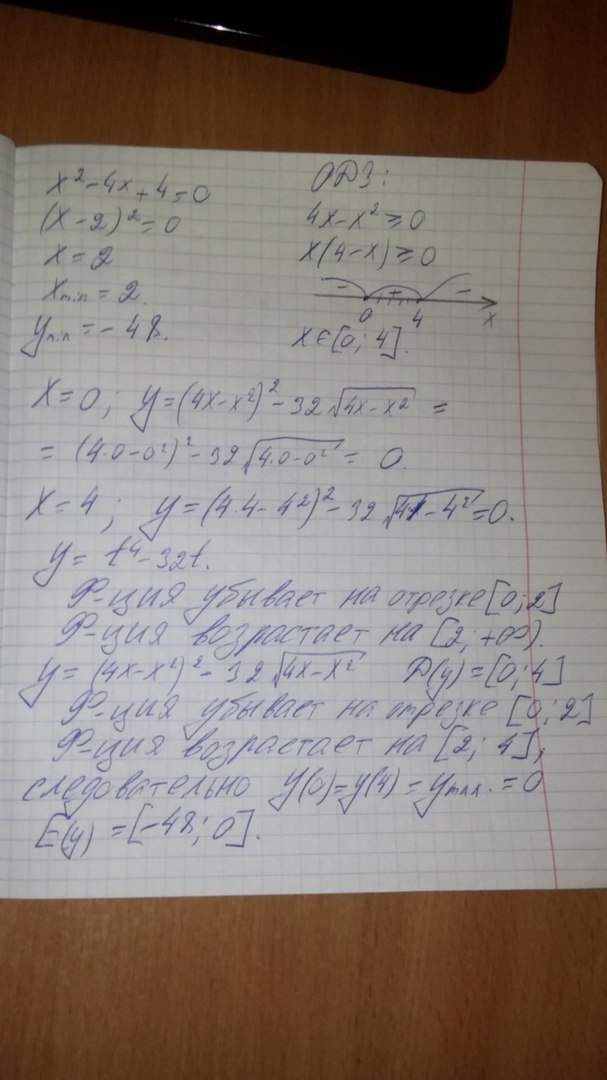 x² - 4x + 4 = 0
(x - 2)² = 0
x = 2
xmin = 2.
ymin = -48.
ОДЗ:
4x - x² ≥ 0
x(4 - x) ≥ 0
- + -
0 4 x
x ∈ [0; 4].
x = 0; y = (4x - x²)² - 32√(4x - x²) =
= (4·0 - 0²)² - 32√(4·0 - 0²) = 0.
x = 4; y = (4·4 - 4²)² - 32√(4·4 - 4²) = 0.
y = t⁴ - 32t.
Ф-ция убывает на отрезке [0; 2]
Ф-ция возрастает на [2; +∞).
y = (4x - x²)² - 32√(4x - x²) D(y) = [0; 4]
Ф-ция убывает на отрезке [0; 2]
Ф-ция возрастает на [2; 4];
следовательно y(0) = y(4) = ymax. = 0
E(y) = [-48; 0].